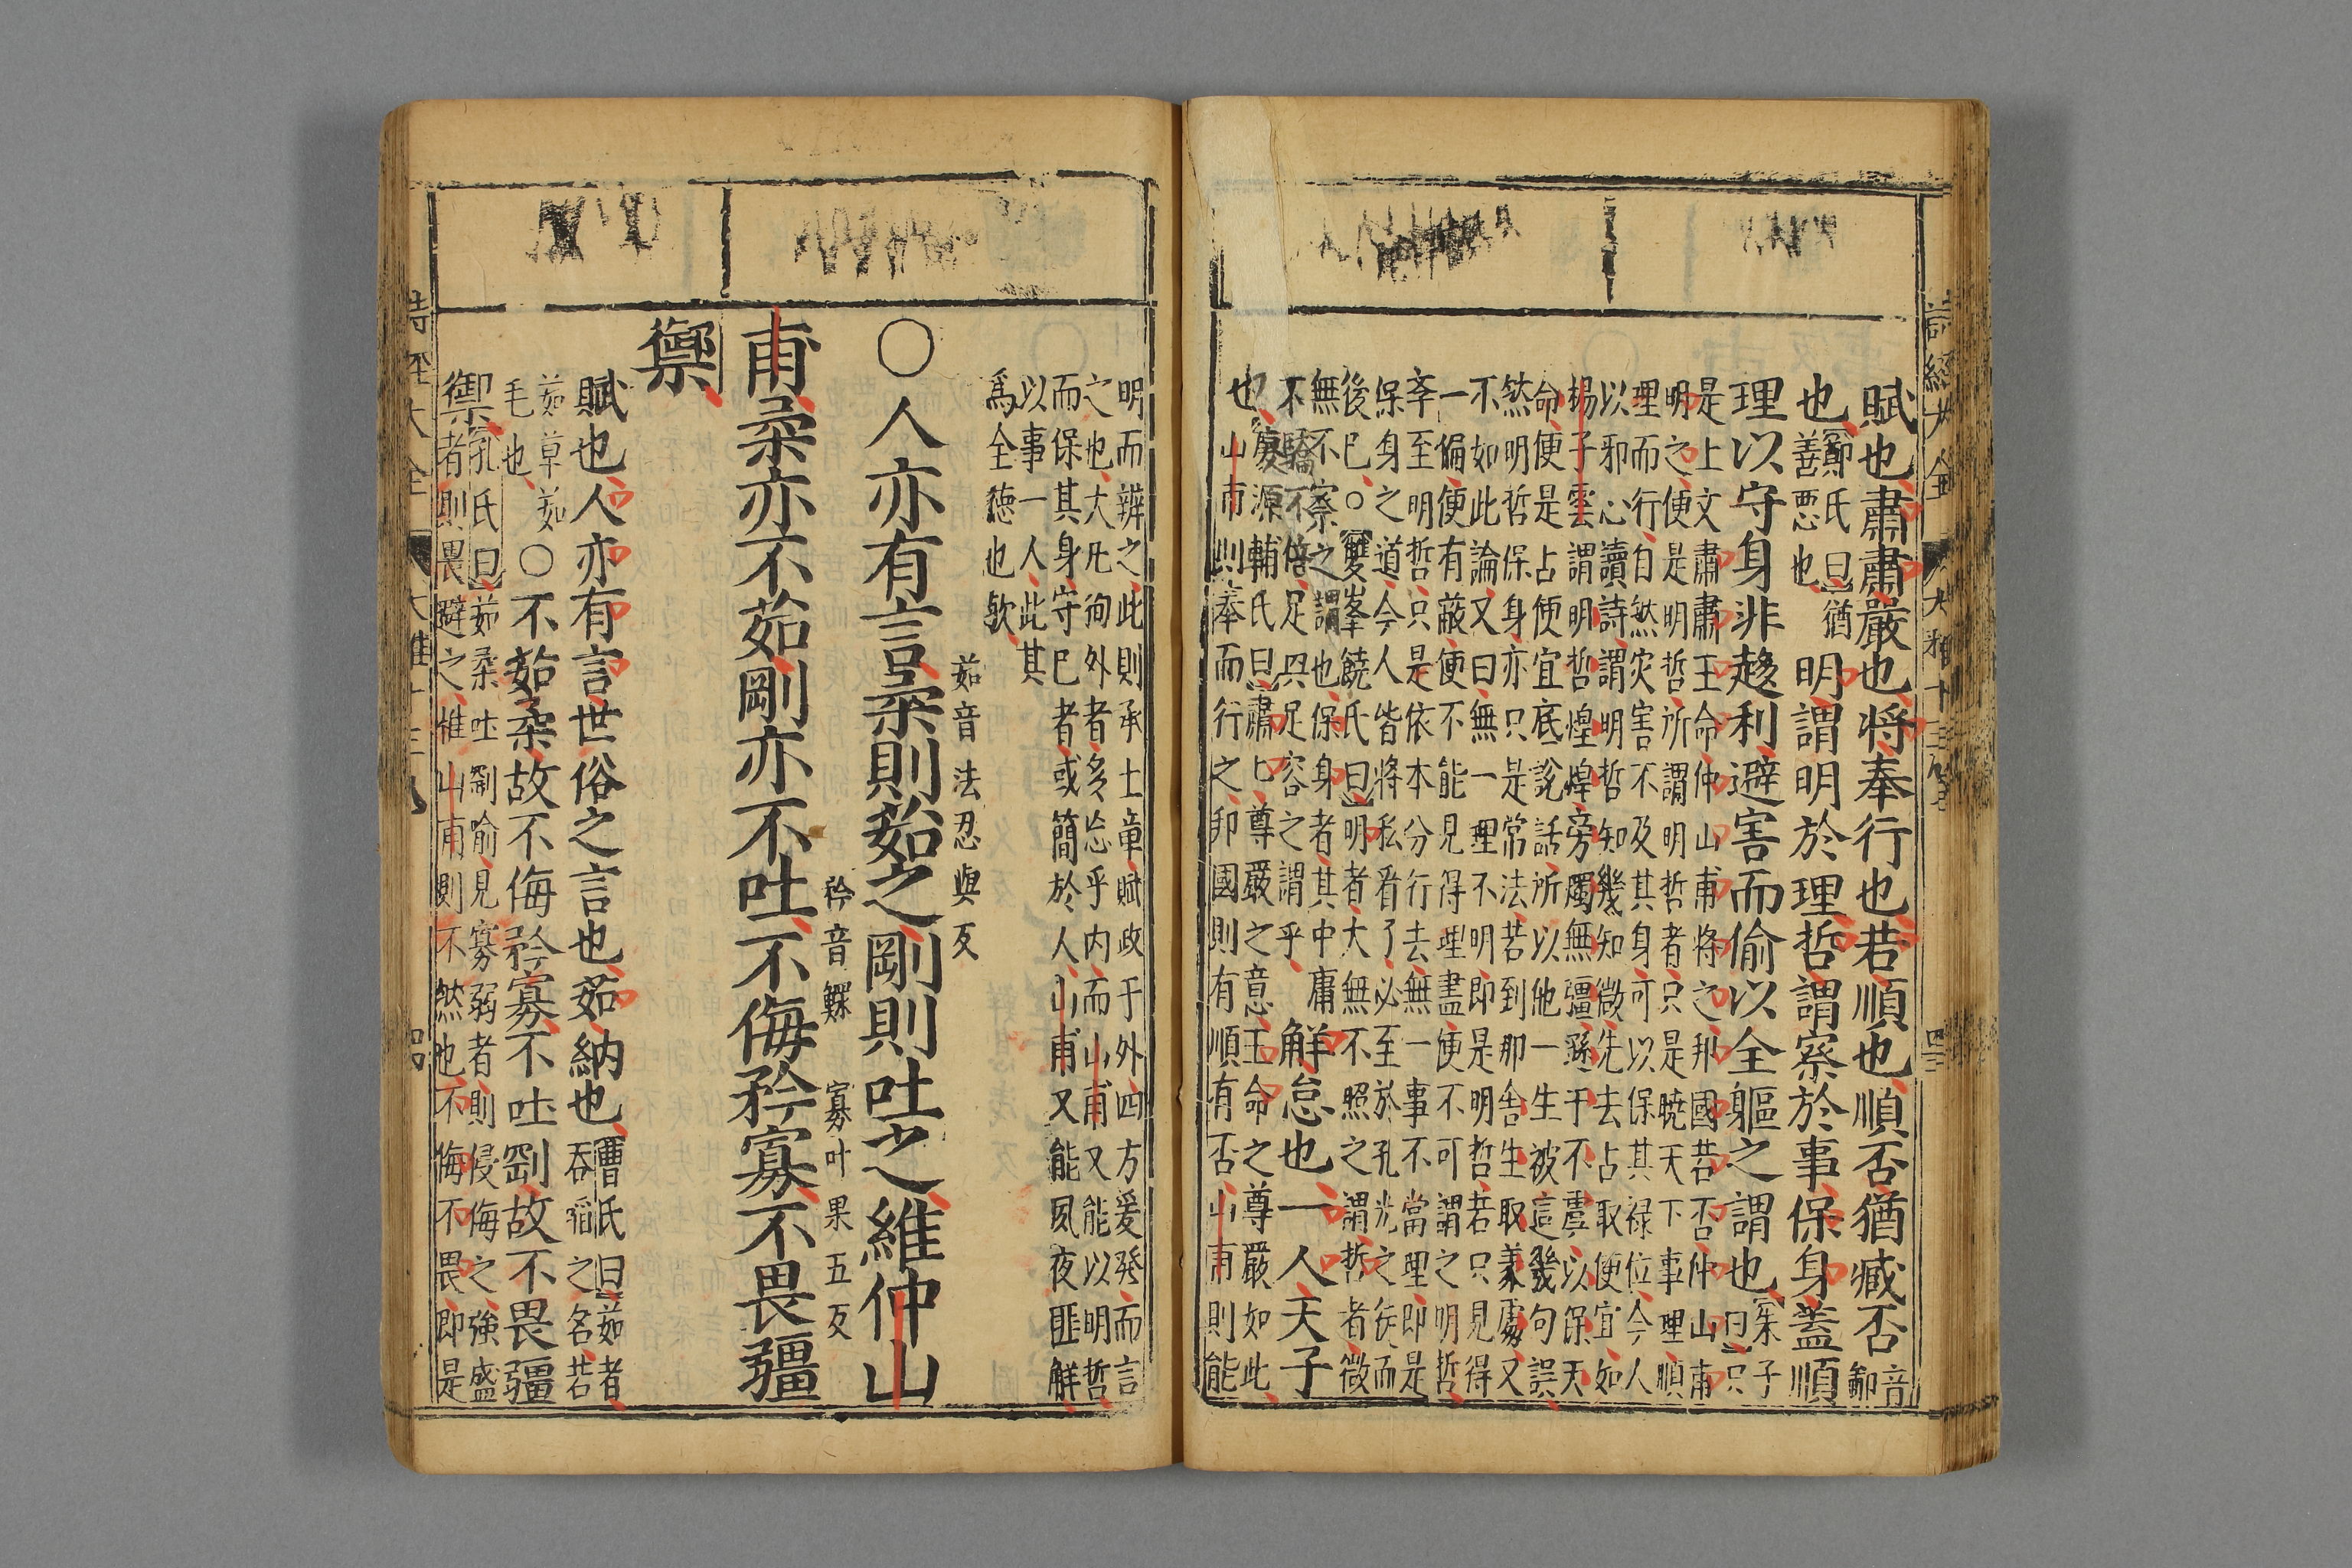 賦也肅肅嚴也將奉行也若順也順否猶臧否音鄙
也鄭氏曰猶善惡也明謂明於理哲謂察於事保身蓋順
理以守身非趍利避害而偷以全軀之謂也朱子曰只
是上文肅肅王命仲山甫將之邦國若否仲山甫
明之便是明哲所謂明哲者只是曉天下事理順
理而行自然灾害不及其身可以保其祿位今人
以邪心讀詩謂明哲知幾知微先去占取便宜如
揚子雲謂明哲煌煌旁燭無疆孫于不虞以保天
命便是占便宜底說話所以他一生被這幾句誤
然明哲保身亦只是常法若到那舍生取義處又
不如此論又曰無一理不明即是明哲若只見得
一偏便有蔽便不能見得理盡便不可謂之明哲
孝至明哲只是依本分行去無一事不當理即是
保身之道今人皆將私看了必至於孔光之徒而
後已○雙峯饒氏曰明者大無不照之謂哲者微
無不察之謂也保身者其中庸
不驕不倍足興足容之謂乎解怠也一人天子
慶源輔氏曰肅肅尊嚴之意王命之尊嚴如此
也山甫則奉而行之邦國則有順有否山甫則能
明而辨之此則承上章賦政于外四方爰發而言
之也大凡徇外者多忘乎内而山甫又能以明哲
而保其身守已者或簡於人山甫又能夙夜匪解
以事一人此其
爲全德也歟
○人亦有言柔則茹之剛則吐之維仲山
茹音法忍與反
甫柔亦不茹剛亦不吐不侮矜寡不畏彊
矜音鰥寡叶果五反
禦
賦也人亦有言世俗之言也茹納也曹氏曰茹者吞稻之名若
茹草茹毛也○不茹柔故不侮矜寡不吐剛故不畏彊
禦孔氏曰茹柔吐剛喻見寡弱者則侵侮之強盛
者則畏避之惟山甫則不然也不侮不畏即是